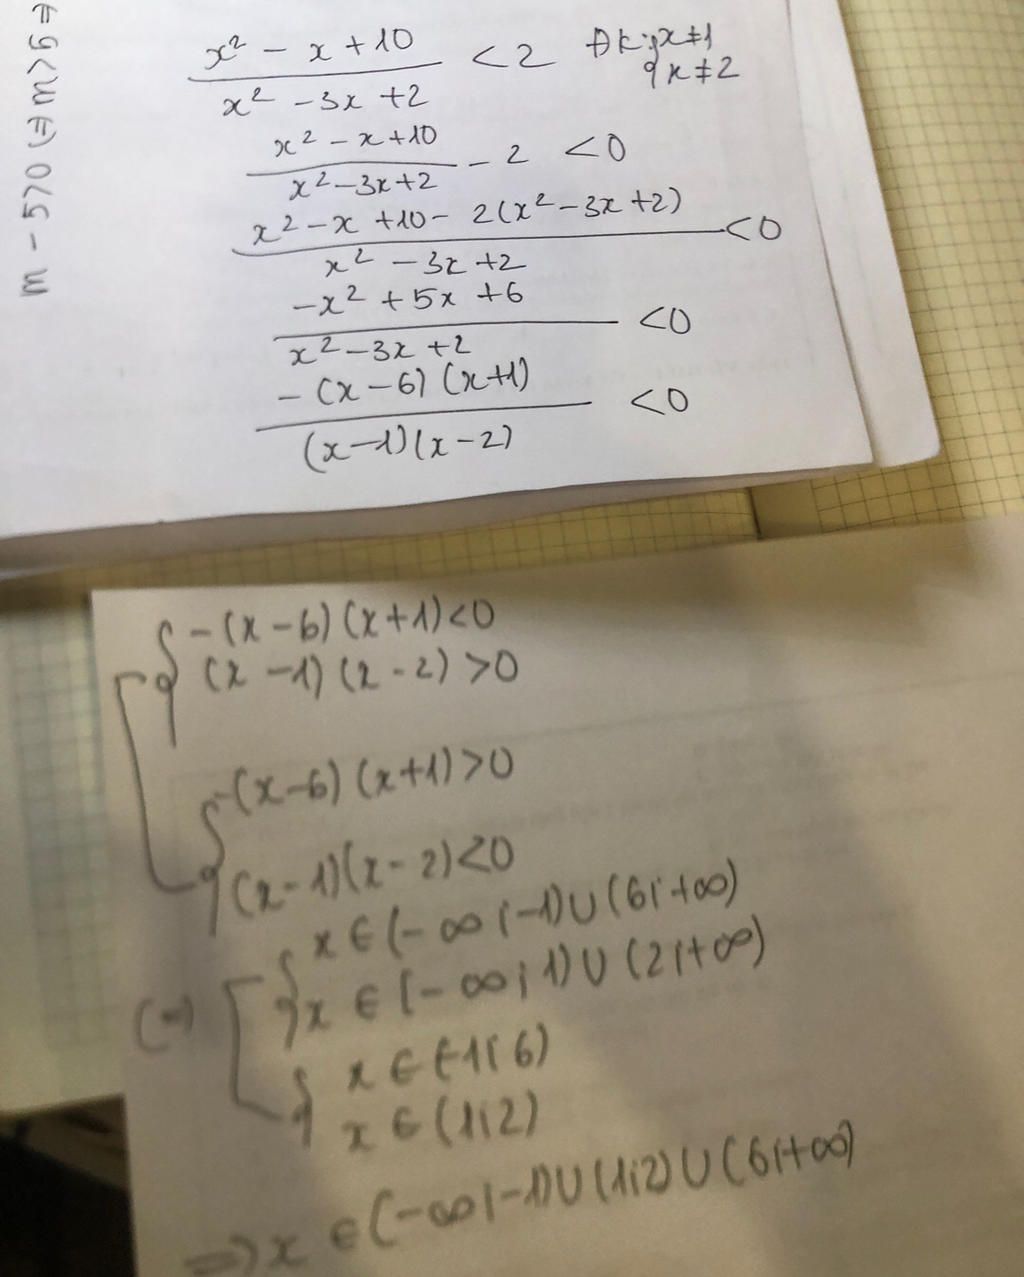 m - 570 ⇒ m > 5 =
x² - x + 10 / x² - 3x + 2 < 2 ĐK: { x ≠ 1
x ≠ 2
x² - x + 10 / x² - 3x + 2 - 2 < 0
x² - x + 10 - 2(x² - 3x + 2) / x² - 3x + 2 < 0
-x² + 5x + 6 / x² - 3x + 2 < 0
-(x - 6)(x + 1) / (x - 1)(x - 2) < 0
[ { -(x - 6)(x + 1) < 0
(x - 1)(x - 2) > 0
{ -(x - 6)(x + 1) > 0
(x - 1)(x - 2) < 0
(=) [ { x ∈ (-∞; -1) ∪ (6; +∞)
x ∈ (-∞; 1) ∪ (2; +∞)
{ x ∈ (-1; 6)
x ∈ (1; 2)
=> x ∈ (-∞; -1) ∪ (1; 2) ∪ (6; +∞)